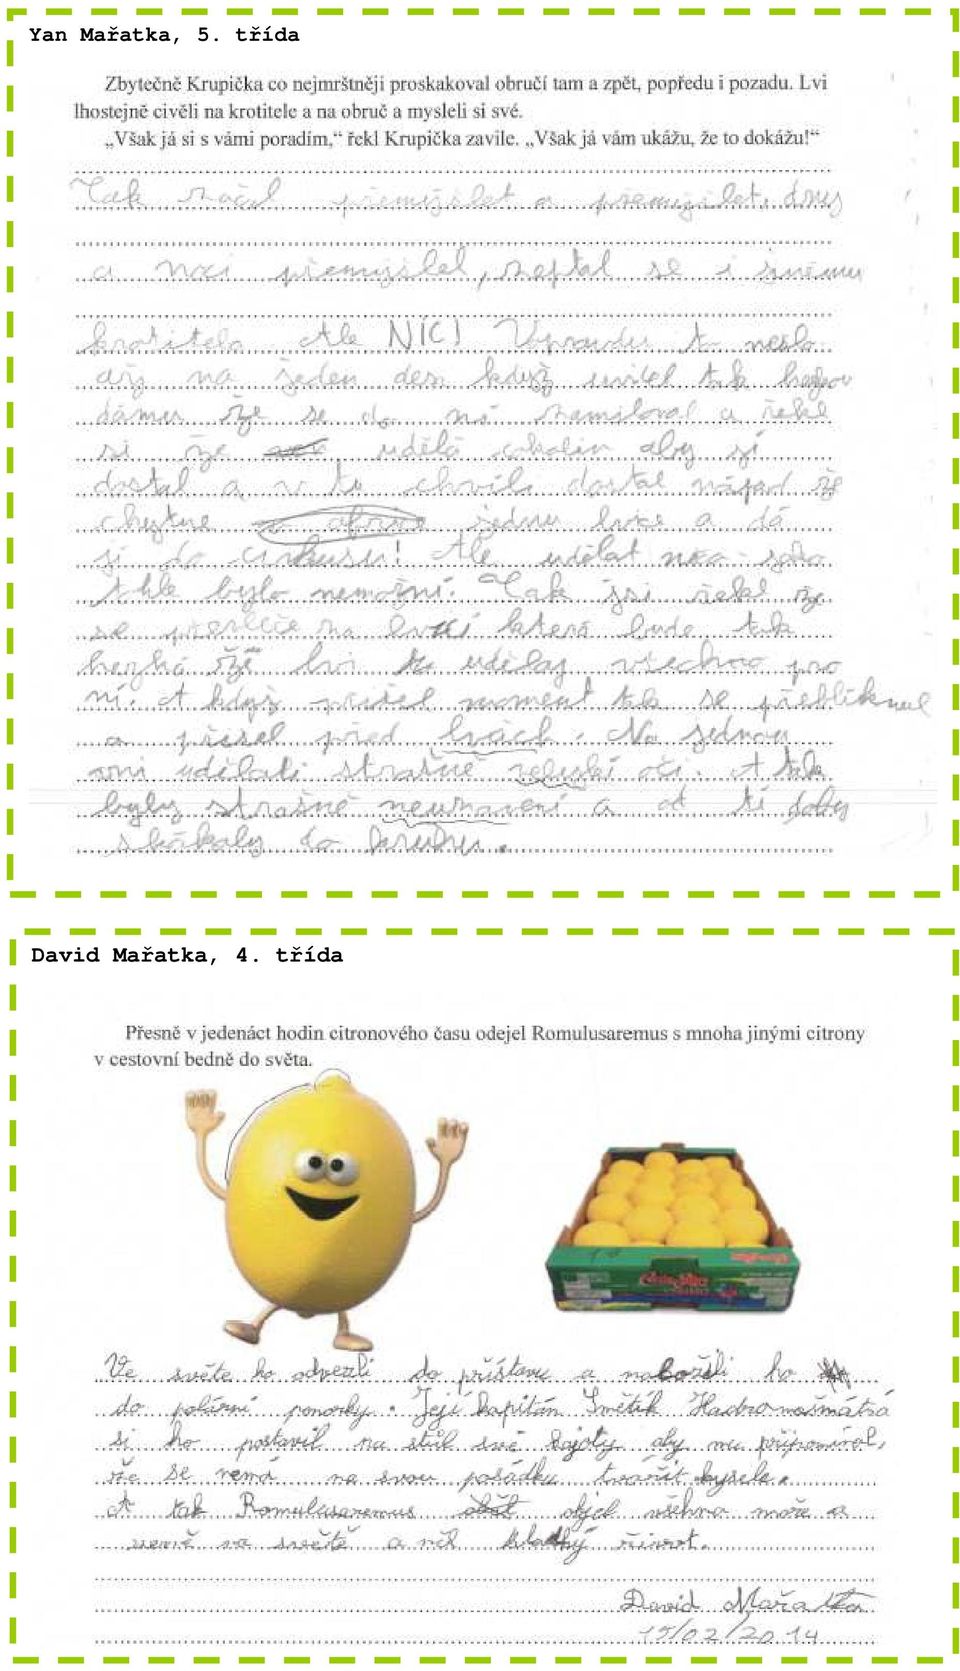 Yan Mařatka, 5. třída
Zbytečně Krupička co nejmrštněji proskakoval obručí tam a zpět, popředu i pozadu. Lvi
lhostejně civěli na krotitele a na obruč a mysleli si své.
„Však já si s vámi poradím,“ řekl Krupička zavile. „Však já vám ukážu, že to dokážu!“
Tak začal přemýšlet a přemýšlet, dny
a noci přemýšlel, zeptal se i jinému
krotitela Ale NIC! Vopravdu to nešlo
až na jeden den když uviďel tak
dámu že se do ní zamiloval a řekl
si že udělá cokoliv aby ji
dostal a v tu chvíli dostal nápad že
chytne jednu lvice a dá
ji do cirkusu! Ale udělat
tohle bylo nemožní. Tak jsi řekl že
se převleče na lvici která bude tak
hezká že lvi udělaj všechno pro
ní. A když přišel moment tak se přeblíknul
a přišel před lvách. Na jednou
oni udělali strašně oči. A
byly strašně neunavení a od tí doby
skákaly do kruhu.
David Mařatka, 4. třída
Přesně v jedenáct hodin citronového času odejel Romulusaremus s mnoha jinými citrony
v cestovní bedně do světa.
Ve světe ho odvezli do přístavu a naložili ho
do polární ponorky. Její kapitán Smětík Hadromošmátrá
si ho postavil na stůl své kajoty aby mu připomíval,
že se nemá na svou posádku tvářit kysele.
A tak Romulusaremus objel všehna moře a
země na světě a měl hladký život.
David Mařatka
15/02/2014